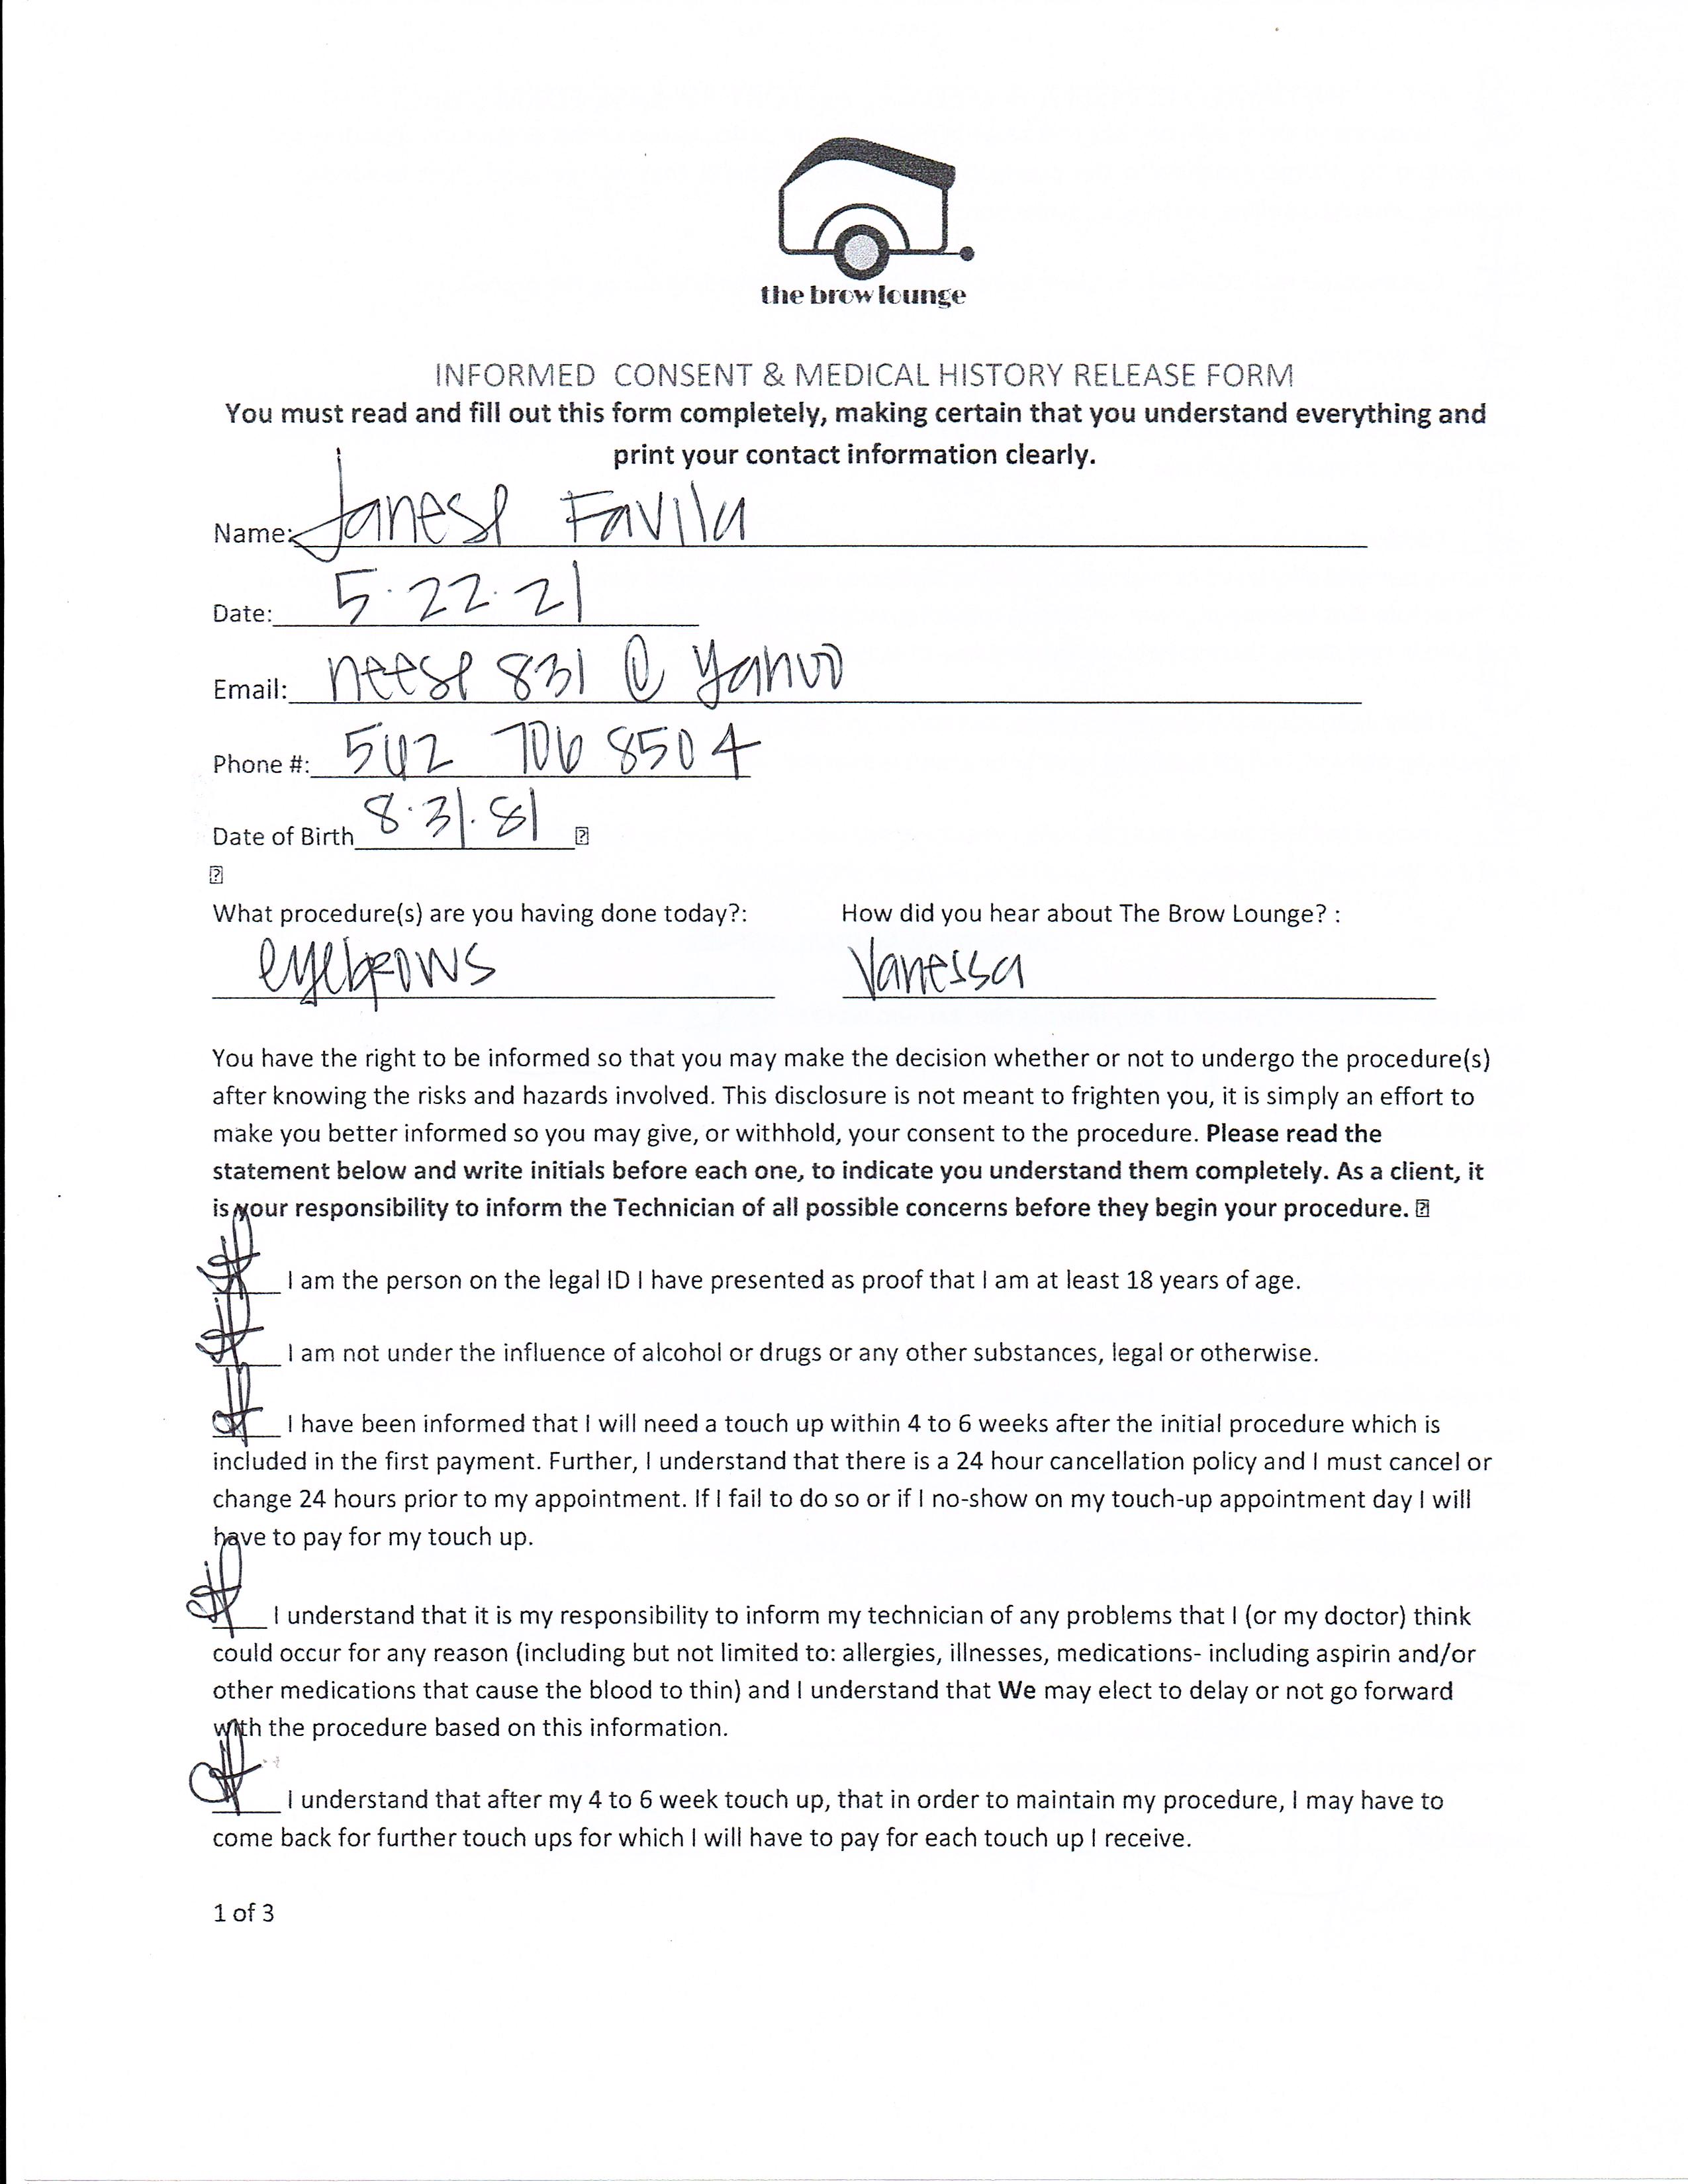 the brow lounge
INFORMED CONSENT & MEDICAL HISTORY RELEASE FORM
You must read and fill out this form completely, making certain that you understand everything and
print your contact information clearly.
Name: Janese Favila
Date: 5.22.21
Email: neese 831 @ yahoo
Phone #: 562 706 8504
Date of Birth 8.31.81
What procedure(s) are you having done today?: How did you hear about The Brow Lounge? :
eyebrows Vanessa
You have the right to be informed so that you may make the decision whether or not to undergo the procedure(s)
after knowing the risks and hazards involved. This disclosure is not meant to frighten you, it is simply an effort to
make you better informed so you may give, or withhold, your consent to the procedure. Please read the
statement below and write initials before each one, to indicate you understand them completely. As a client, it
is your responsibility to inform the Technician of all possible concerns before they begin your procedure.
JF I am the person on the legal ID I have presented as proof that I am at least 18 years of age.
JF I am not under the influence of alcohol or drugs or any other substances, legal or otherwise.
JF I have been informed that I will need a touch up within 4 to 6 weeks after the initial procedure which is
included in the first payment. Further, I understand that there is a 24 hour cancellation policy and I must cancel or
change 24 hours prior to my appointment. If I fail to do so or if I no-show on my touch-up appointment day I will
have to pay for my touch up.
JF I understand that it is my responsibility to inform my technician of any problems that I (or my doctor) think
could occur for any reason (including but not limited to: allergies, illnesses, medications- including aspirin and/or
other medications that cause the blood to thin) and I understand that We may elect to delay or not go forward
with the procedure based on this information.
JF I understand that after my 4 to 6 week touch up, that in order to maintain my procedure, I may have to
come back for further touch ups for which I will have to pay for each touch up I receive.
1 of 3